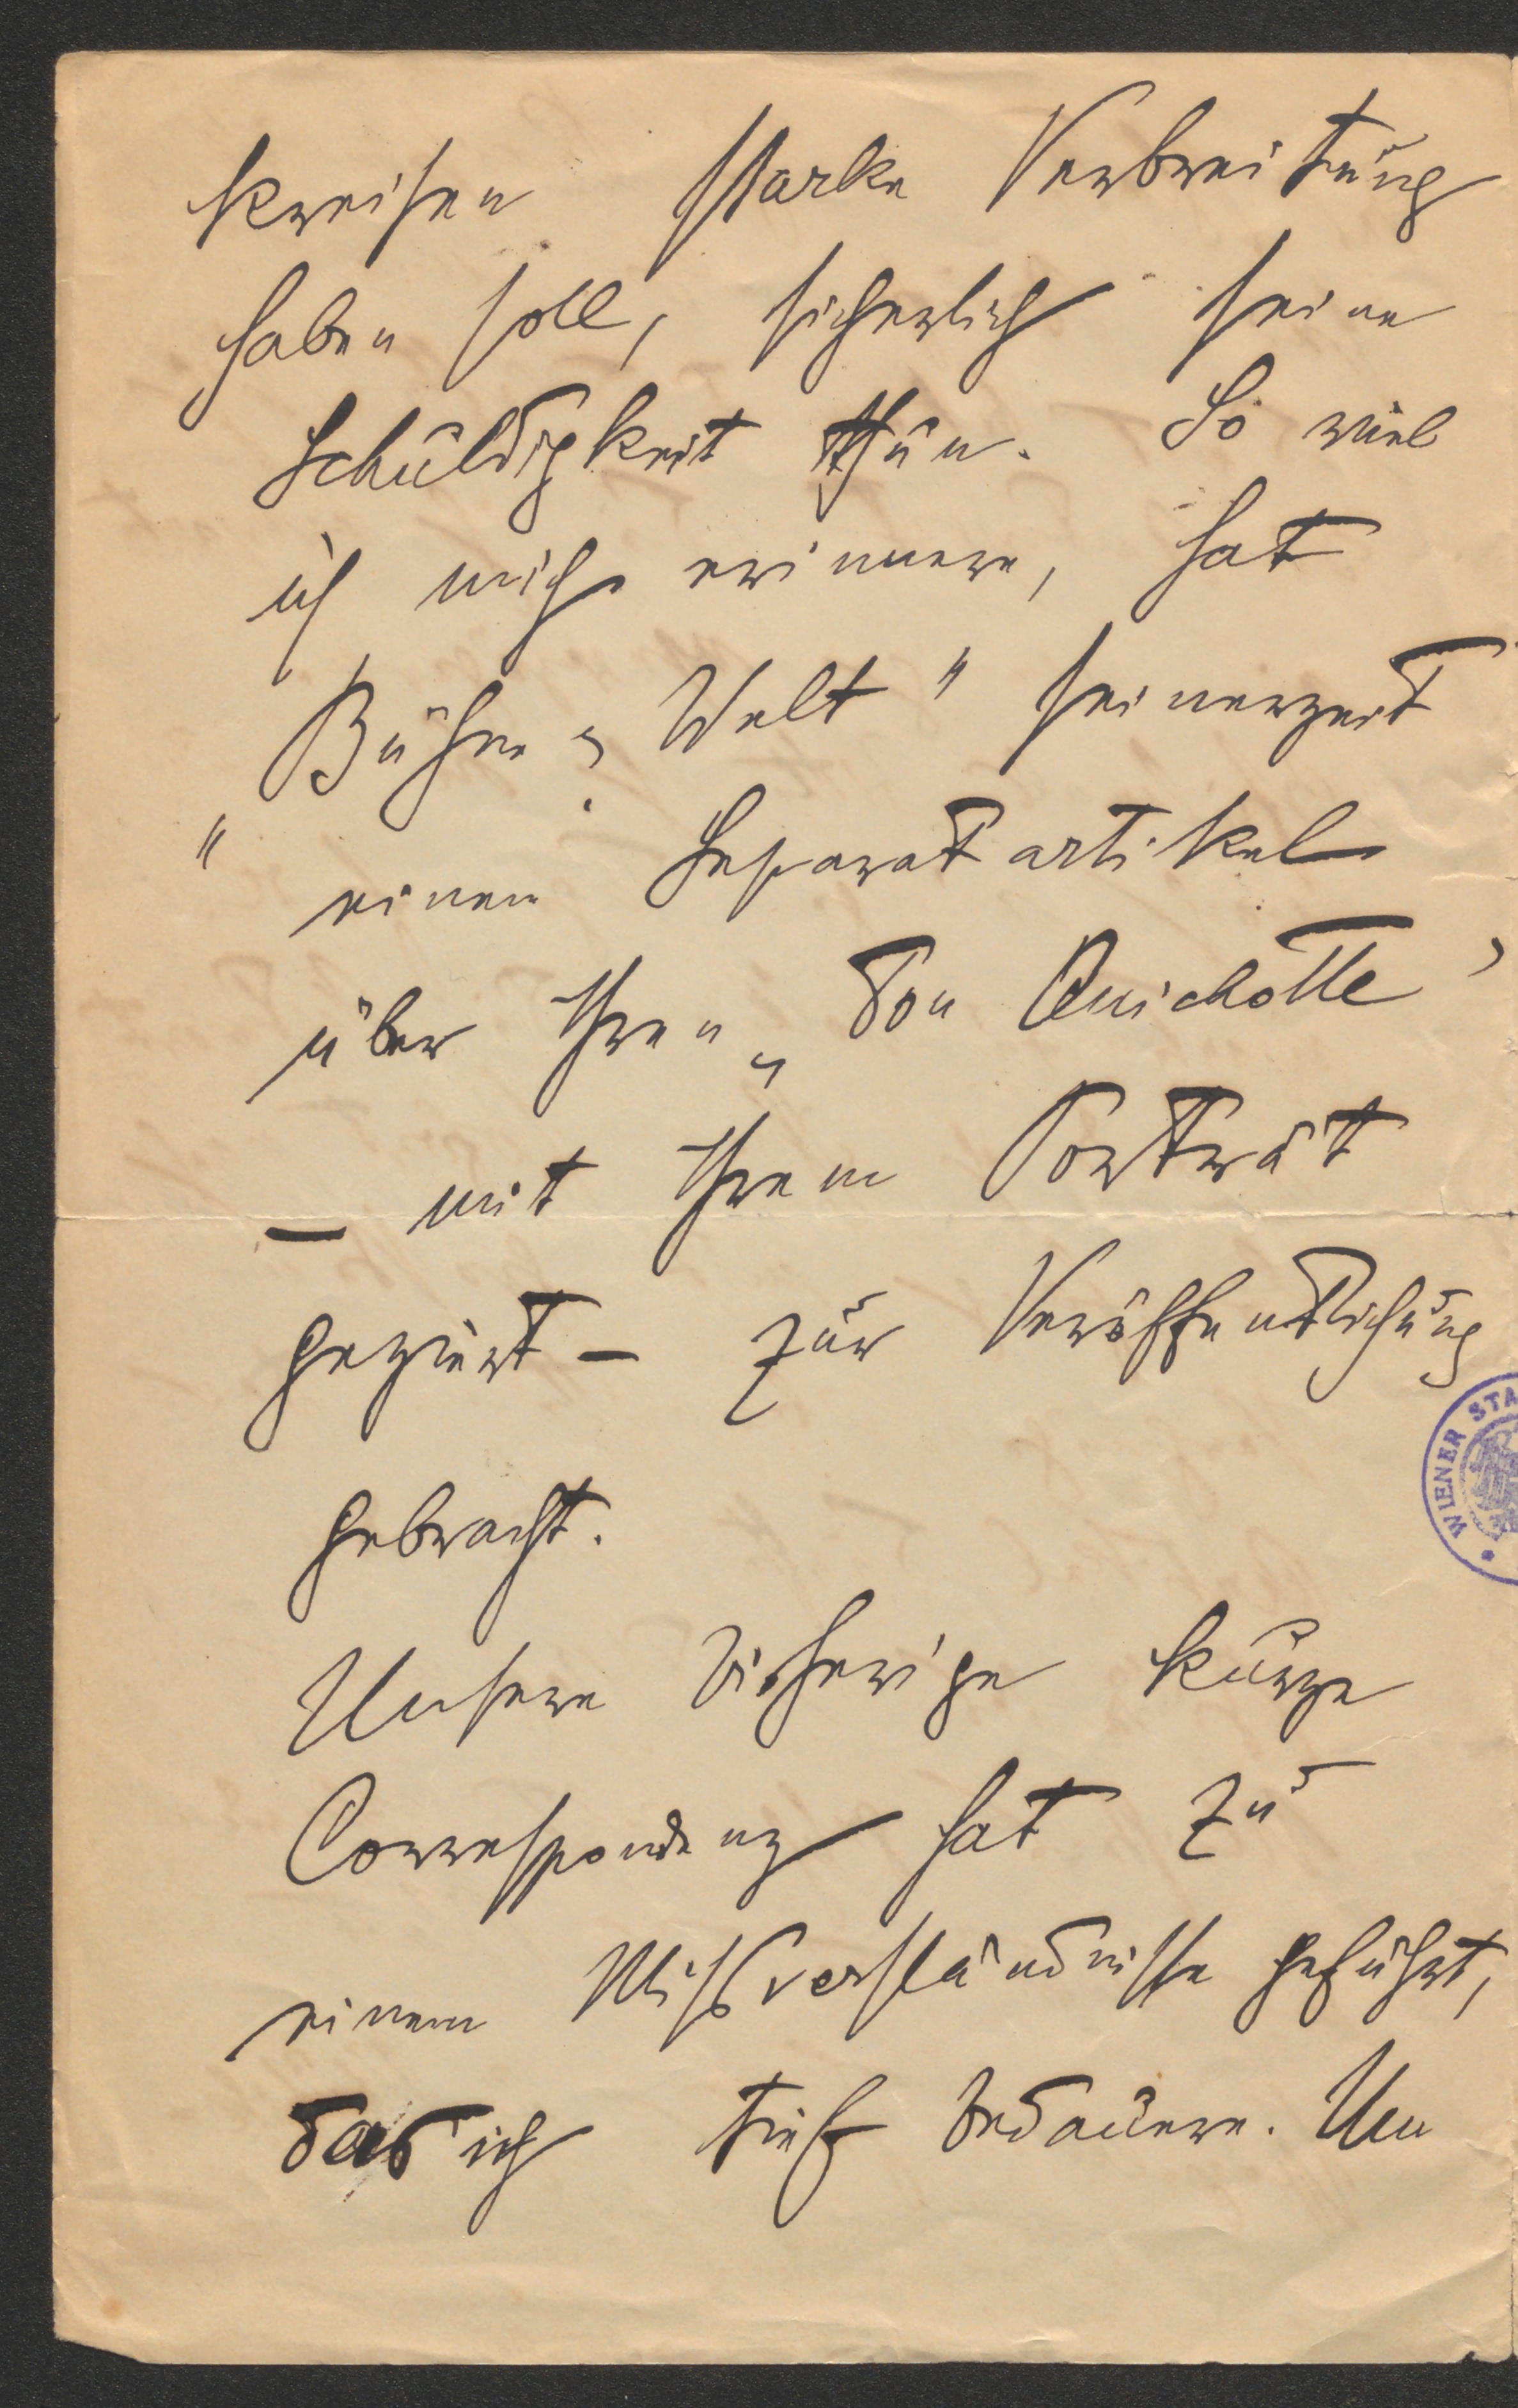 Kreisen starke Verbreitung
haben soll, sicherlich seine
Schuldigkeit thun. So viel
ich mich erinnere, hat
„Bühne & Welt" seinerzeit
einen Separatartikel
über Ihren „Don Quichotte"
— mit Ihrem Porträt
geziert — zur Veröffentlichung
gebracht.
WIENER STA
Unsere bisherige kurze
Correspondenz hat zu
einem Mißverständnisse geführt,
das ich tief bedauere. Um